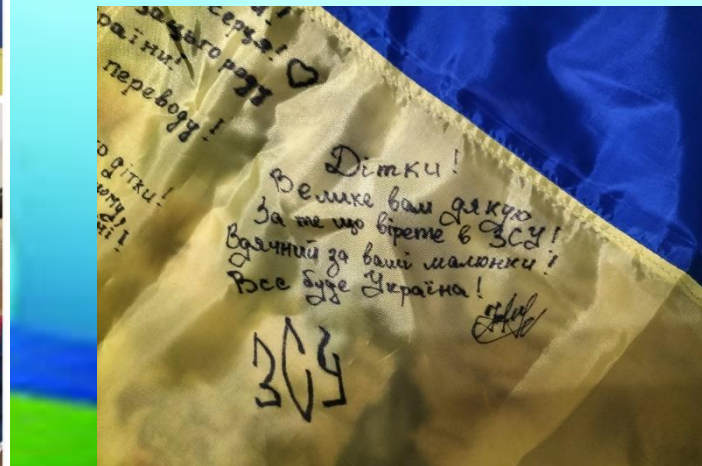 серця!
країни!
переводу!
дітки!
Дітки!
Велике вам дякую
За те що вірете в ЗСУ!
Вдячний за ваші малюнки!
Все буде Україна!
ЗСУ